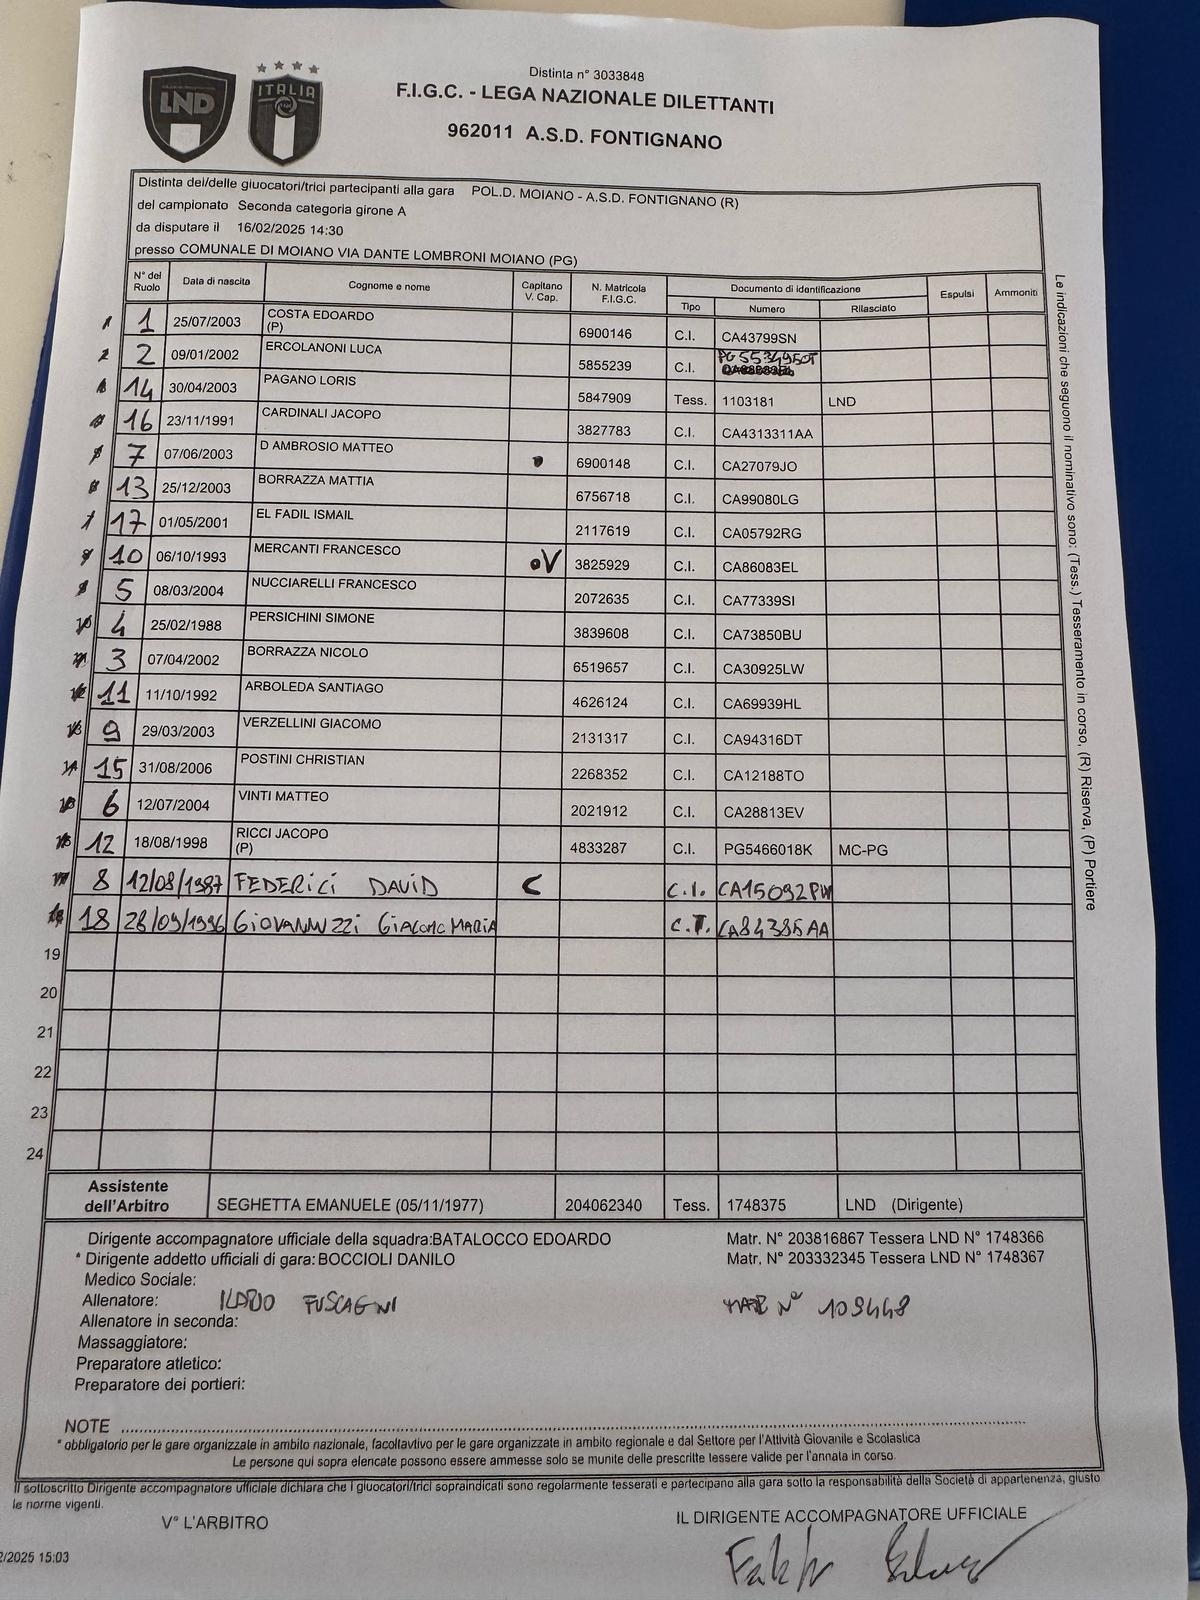 Distinta n° 3033848
LND
ITALIA
F.I.G.C. - LEGA NAZIONALE DILETTANTI
962011 A.S.D. FONTIGNANO
Distinta dei/delle giuocatori/trici partecipanti alla gara POL.D. MOIANO - A.S.D. FONTIGNANO (R)
del campionato Seconda categoria girone A
da disputare il 16/02/2025 14:30
presso COMUNALE DI MOIANO VIA DANTE LOMBRONI MOIANO (PG)
N° del Ruolo Data di nascita Cognome e nome Capitano V. Cap. N. Matricola F.I.G.C. Documento di identificazione Espulsi Ammoniti
Tipo Numero Rilasciato
1 1 25/07/2003 COSTA EDOARDO (P) 6900146 C.I. CA43799SN
2 2 09/01/2002 ERCOLANONI LUCA 5855239 C.I. PG5534950T
14 30/04/2003 PAGANO LORIS 5847909 Tess. 1103181 LND
16 23/11/1991 CARDINALI JACOPO 3827783 C.I. CA4313311AA
7 07/06/2003 D AMBROSIO MATTEO 6900148 C.I. CA27079JO
13 25/12/2003 BORRAZZA MATTIA 6756718 C.I. CA99080LG
17 01/05/2001 EL FADIL ISMAIL 2117619 C.I. CA05792RG
10 06/10/1993 MERCANTI FRANCESCO V 3825929 C.I. CA86083EL
5 08/03/2004 NUCCIARELLI FRANCESCO 2072635 C.I. CA77339SI
10 4 25/02/1988 PERSICHINI SIMONE 3839608 C.I. CA73850BU
11 3 07/04/2002 BORRAZZA NICOLO 6519657 C.I. CA30925LW
12 11 11/10/1992 ARBOLEDA SANTIAGO 4626124 C.I. CA69939HL
13 9 29/03/2003 VERZELLINI GIACOMO 2131317 C.I. CA94316DT
14 15 31/08/2006 POSTINI CHRISTIAN 2268352 C.I. CA12188TO
15 6 12/07/2004 VINTI MATTEO 2021912 C.I. CA28813EV
16 12 18/08/1998 RICCI JACOPO (P) 4833287 C.I. PG5466018K MC-PG
17 8 12/08/1987 FEDERICI DAVID C C.I. CA15092PW
18 18 28/09/1996 GIOVANNUZZI GIACOMO MARIA C.I. CA84385AA
19
20
21
22
23
24
Le indicazioni che seguono il nominativo sono: (Tess.) Tesseramento in corso, (R) Riserva, (P) Portiere
Assistente dell'Arbitro SEGHETTA EMANUELE (05/11/1977) 204062340 Tess. 1748375 LND (Dirigente)
Dirigente accompagnatore ufficiale della squadra:BATALOCCO EDOARDO Matr. N° 203816867 Tessera LND N° 1748366
* Dirigente addetto ufficiali di gara: BOCCIOLI DANILO Matr. N° 203332345 Tessera LND N° 1748367
Medico Sociale:
Allenatore: ILARIO FUSCAGNI MAT N° 109448
Allenatore in seconda:
Massaggiatore:
Preparatore atletico:
Preparatore dei portieri:
NOTE
* obbligatorio per le gare organizzate in ambito nazionale, facoltavtivo per le gare organizzate in ambito regionale e dal Settore per l'Attività Giovanile e Scolastica
Le persone qui sopra elencate possono essere ammesse solo se munite delle prescritte tessere valide per l'annata in corso.
Il sottoscritto Dirigente accompagnatore ufficiale dichiara che i giuocatori/trici sopraindicati sono regolarmente tesserati e partecipano alla gara sotto la responsabilità della Società di appartenenza, giusto
le norme vigenti.
V° L'ARBITRO IL DIRIGENTE ACCOMPAGNATORE UFFICIALE
2/2025 15:03